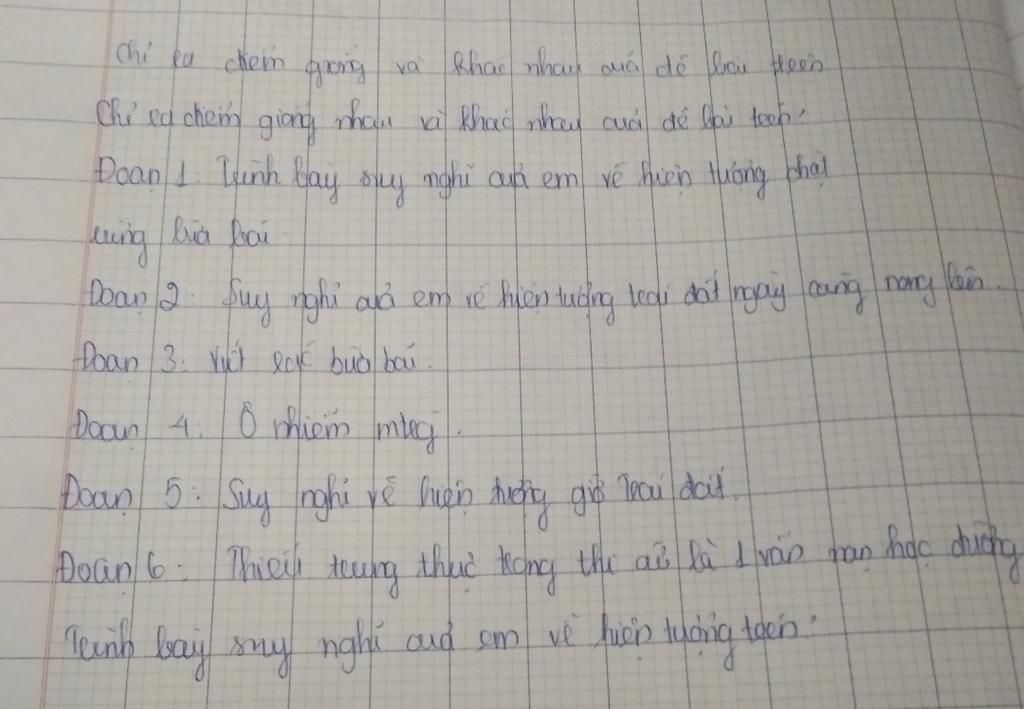 Chỉ ra điểm giống và khác nhau của đề bài trên
Chỉ ra điểm giống nhau và khác nhau của đề bài trên:
Đoạn 1: Trình bày suy nghĩ của em về hiện tượng phá
rừng bừa bãi
Đoạn 2: Suy nghĩ của em về hiện tượng trái đất ngày càng nóng lên.
Đoạn 3: Vứt rác bừa bãi.
Đoạn 4: Ô nhiễm mtrg.
Đoạn 5: Suy nghĩ về hiện tượng giờ trái đất.
Đoạn 6: Thiếu trung thực trong thi cử là 1 vấn nạn học đường
Trình bày suy nghĩ của em về hiện tượng trên.